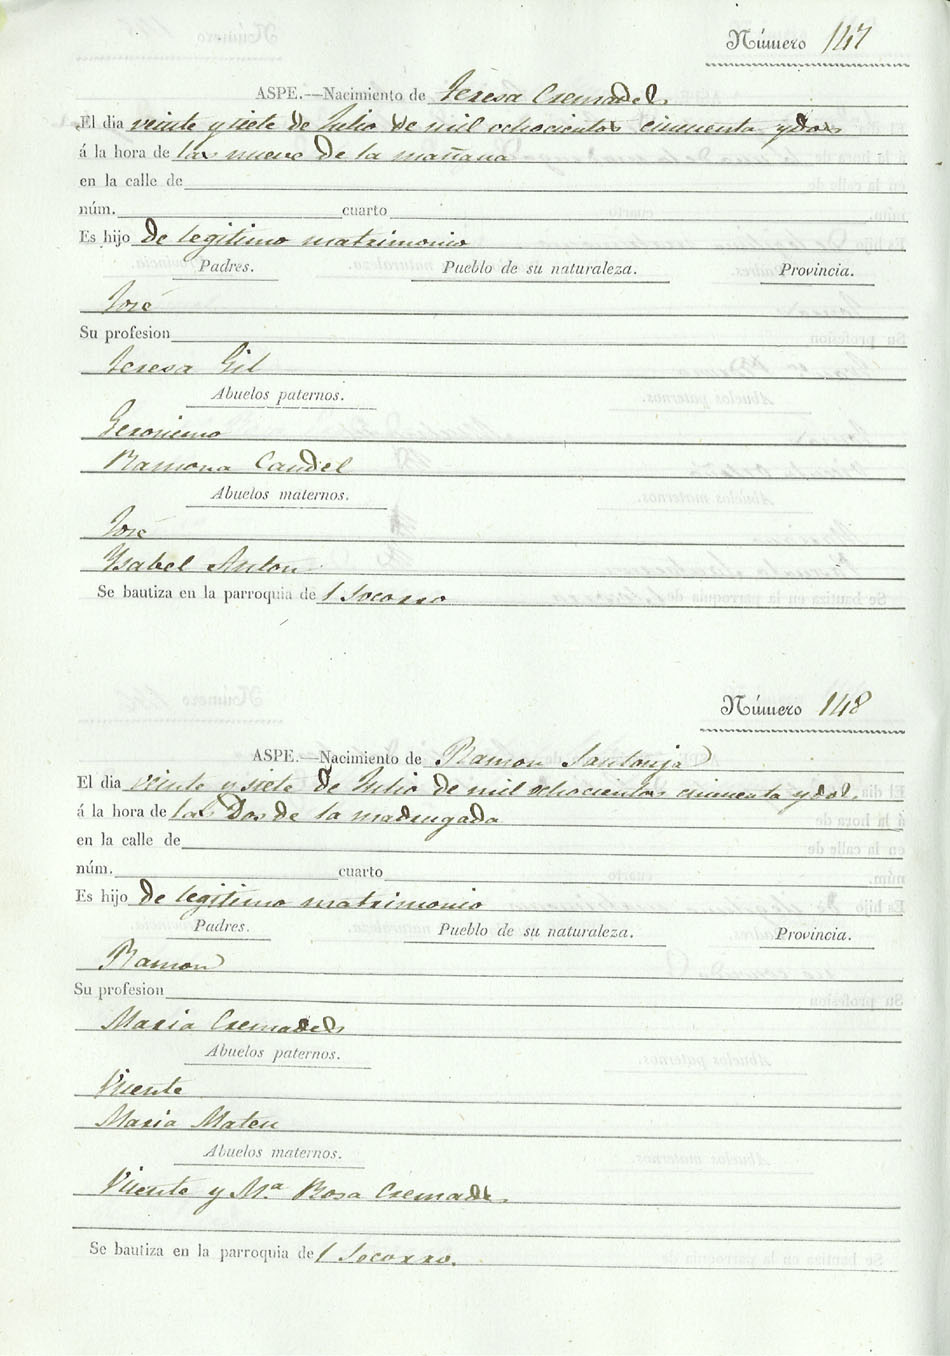 Número 147
ASPE.—Nacimiento de Teresa Cremades
El dia veinte y siete de Julio de mil ochocientos cincuenta y dos
á la hora de las nueve de la mañana
en la calle de
núm. cuarto
Es hijo de legitimo matrimonio
Padres. Pueblo de su naturaleza. Provincia.
José
Su profesion
Teresa Gil
Abuelos paternos.
Geronimo
Ramona Candel
Abuelos maternos.
José
Ysabel Anton
Se bautiza en la parroquia del Socorro
Número 148
ASPE.—Nacimiento de Ramon Santonja
El dia veinte y siete de Julio de mil ochocientos cincuenta y dos.
á la hora de las Dos de la madrugada
en la calle de
núm. cuarto
Es hijo de legitimo matrimonio
Padres. Pueblo de su naturaleza. Provincia.
Ramon
Su profesion
Maria Cremades
Abuelos paternos.
Vicente
Maria Mateu
Abuelos maternos.
Vicente y Mª Rosa Cremades
Se bautiza en la parroquia del Socorro.